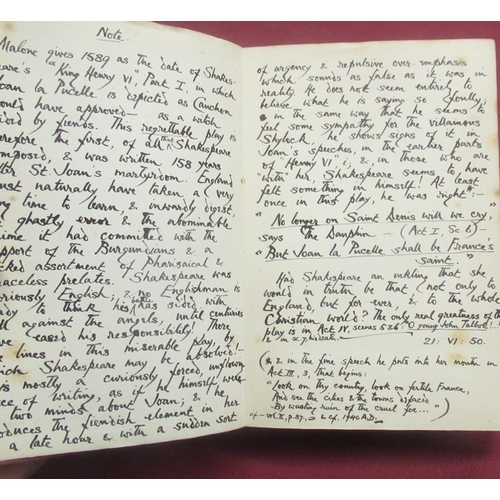 Note.
Malone gives 1589 as the date of Shakes-
peare's "King Henry VI", Part I, in which
Joan la Pucelle is depicted as Cauchon
would have approved — as a witch
aided by fiends. This regrettable play is
therefore, the first, of all Shakespeare
composed, & was written 158 years
after St. Joan's martyrdom. England
must naturally have taken a very
long time to learn, & inwardly digest,
the ghastly error & the abominable
crime it had committed with the
support of the Burgundians & a
assortment of Pharisaical &
graceless prelates. Shakespeare was
curiously English, & no Englishman is
ready to think his battle sides with
against the angels, until centuries
have eased his responsibility! There
are lines in this miserable play, by
which Shakespeare may be absolved!
mostly a curiously forced,
piece of writing, as if he himself were
two minds about Joan; & he
introduces the fiendish element in her
a late hour & with a sudden sort
of urgency & repulsive over-emphasis
which sounds as false as it was in
reality. He does not seem entirely to
believe what he is saying so fondly;
& in the same way that he seems to
feel some sympathy for the villainous
Shylock, he shows signs of it in
Joan's speeches, in the earlier parts
of "Henry VI" i, &, in those who are
"with" her, Shakespeare seems to have
felt something in himself! At least
once in this play, he was right:—
"No longer on Saint Denis will we cry,"
says The Dauphin — (Act I, Sc 6) —
"But Joan la Pucelle shall be France's
Saint."
Had Shakespeare an inkling that she
would in truth be that (not only to
England, but for ever & to the whole
Christian world? The only real greatness of the
play is in Act IV, scenes 5 & 6: "O young John Talbot!"
21: VI: 50.
(& 2, in the fine speech he puts into her mouth in
Act III, 3, that begins:
"Look on thy country, look on fertile France,
And see the cities & the towns defac'd
By wasting ruin of the cruel foe...")